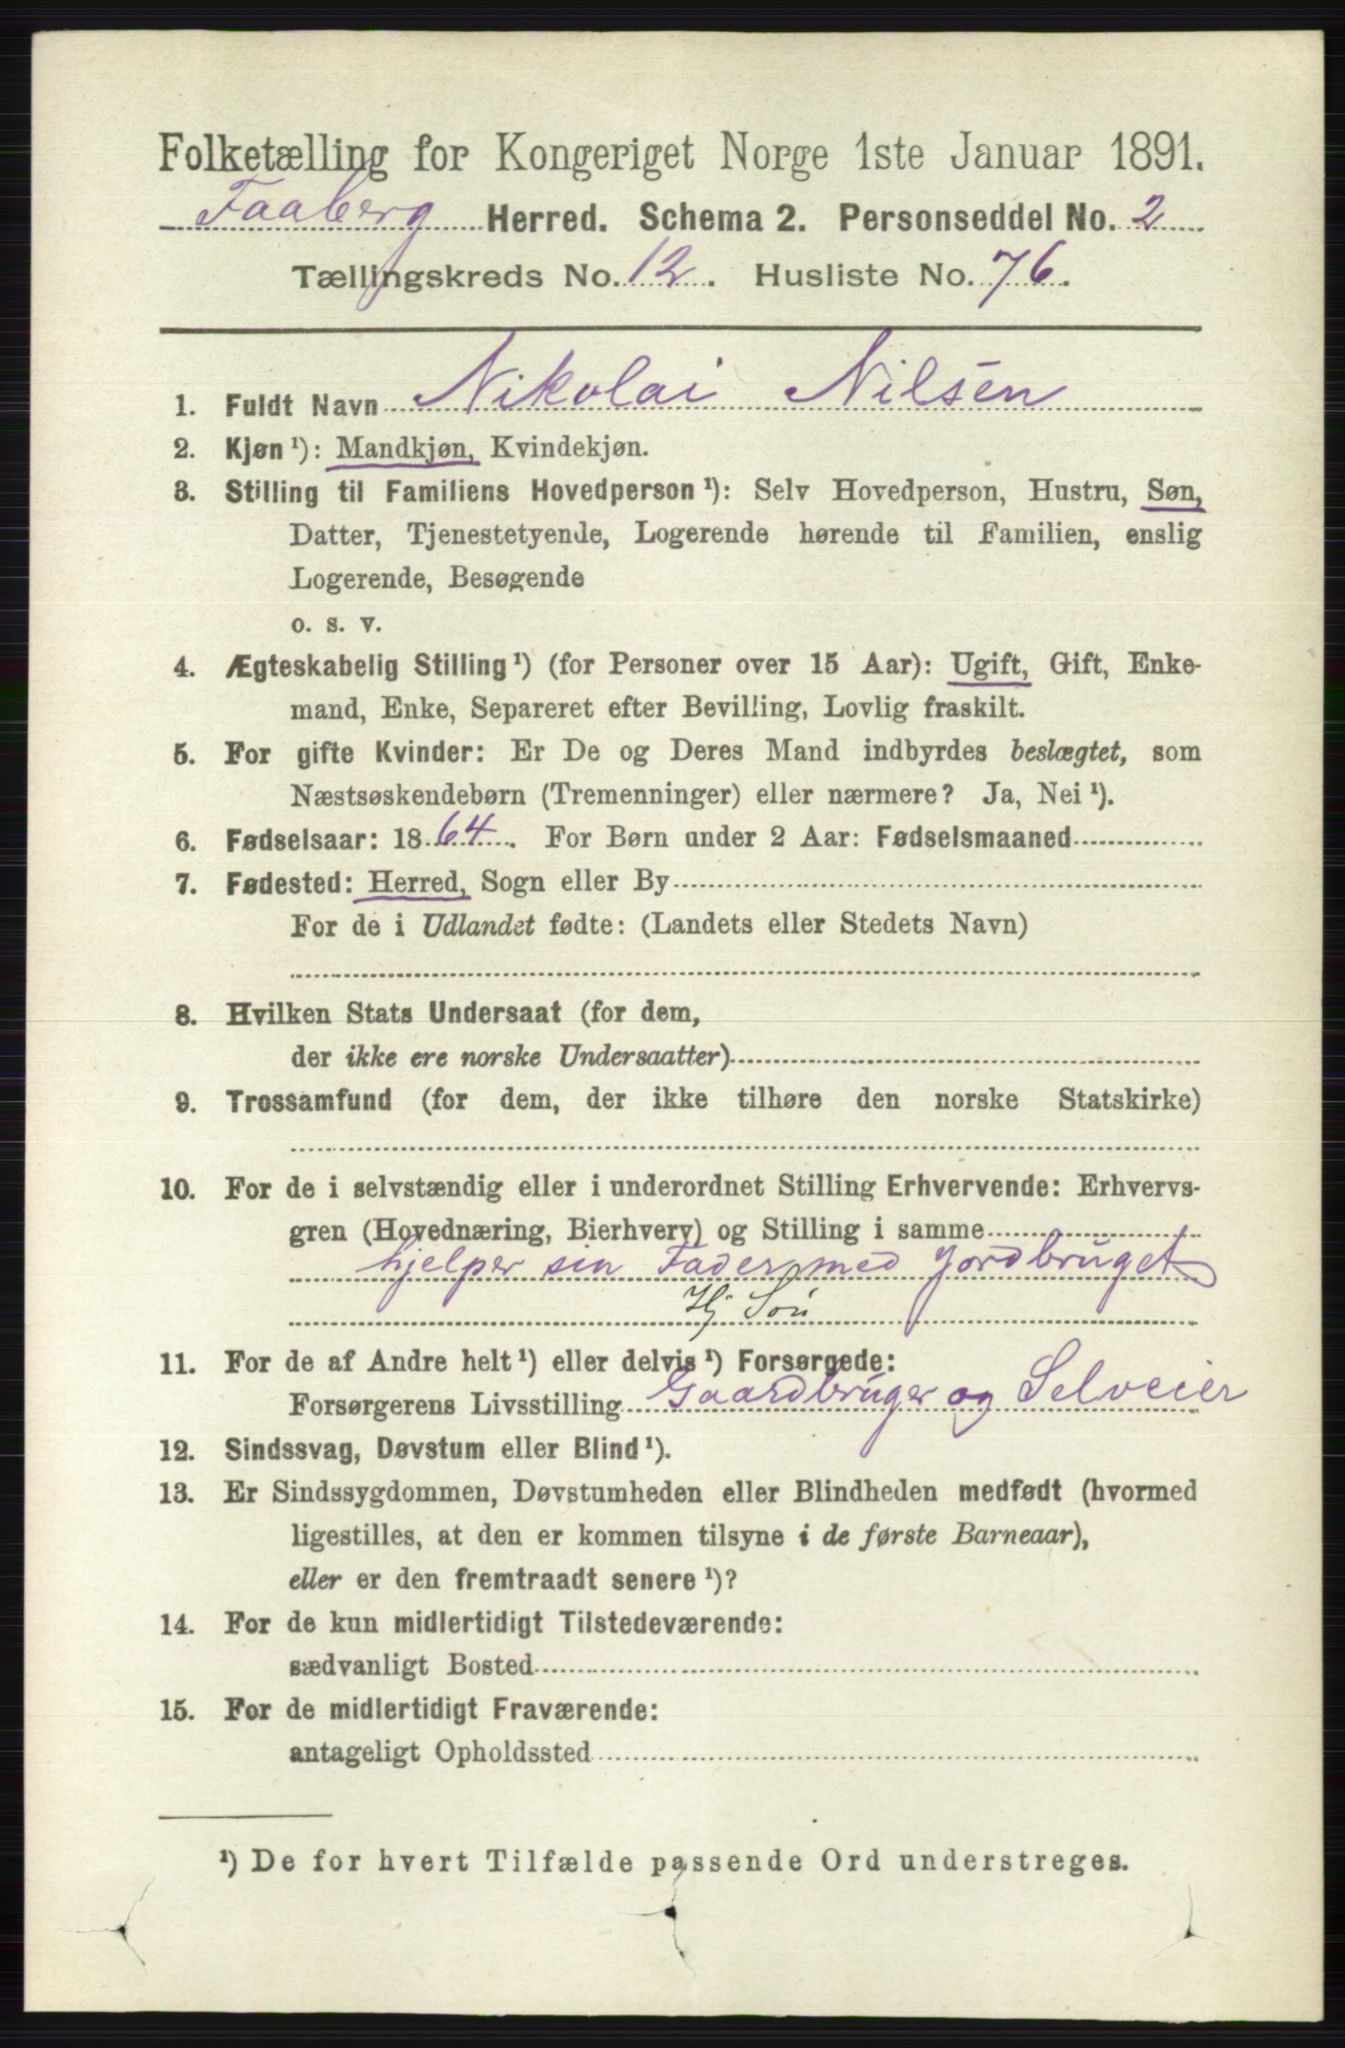 Folketælling for Kongeriget Norge 1ste Januar 1891.
Faaberg Herred. Schema 2. Personseddel No. 2
Tællingskreds No. 12. Husliste No. 76.
1. Fuldt Navn Nikolai Nilsen
2. Kjøn ¹): Mandkjøn, Kvindekjøn.
3. Stilling til Familiens Hovedperson ¹): Selv Hovedperson, Hustru, Søn,
Datter, Tjenestetyende, Logerende hørende til Familien, enslig
Logerende, Besøgende
o. s. v.
4. Ægteskabelig Stilling ¹) (for Personer over 15 Aar): Ugift, Gift, Enke-
mand, Enke, Separeret efter Bevilling, Lovlig fraskilt.
5. For gifte Kvinder: Er De og Deres Mand indbyrdes beslægtet, som
Næstsøskendebørn (Tremenninger) eller nærmere? Ja, Nei ¹).
6. Fødselsaar: 1864. For Børn under 2 Aar: Fødselsmaaned
7. Fødested: Herred, Sogn eller By
For de i Udlandet fødte: (Landets eller Stedets Navn)
8. Hvilken Stats Undersaat (for dem,
der ikke ere norske Undersaatter)
9. Trossamfund (for dem, der ikke tilhøre den norske Statskirke)
10. For de i selvstændig eller i underordnet Stilling Erhvervende: Erhvervs-
gren (Hovednæring, Bierhverv) og Stilling i samme
hjelper sin Fader med Jordbruget
Hj Søn
11. For de af Andre helt ¹) eller delvis ¹) Forsørgede:
Forsørgerens Livsstilling Gaardbruger og Selveier
12. Sindssvag, Døvstum eller Blind ¹).
13. Er Sindssygdommen, Døvstumheden eller Blindheden medfødt (hvormed
ligestilles, at den er kommen tilsyne i de første Barneaar),
eller er den fremtraadt senere ¹)?
14. For de kun midlertidigt Tilstedeværende:
sædvanligt Bosted
15. For de midlertidigt Fraværende:
antageligt Opholdssted
¹) De for hvert Tilfælde passende Ord understreges.